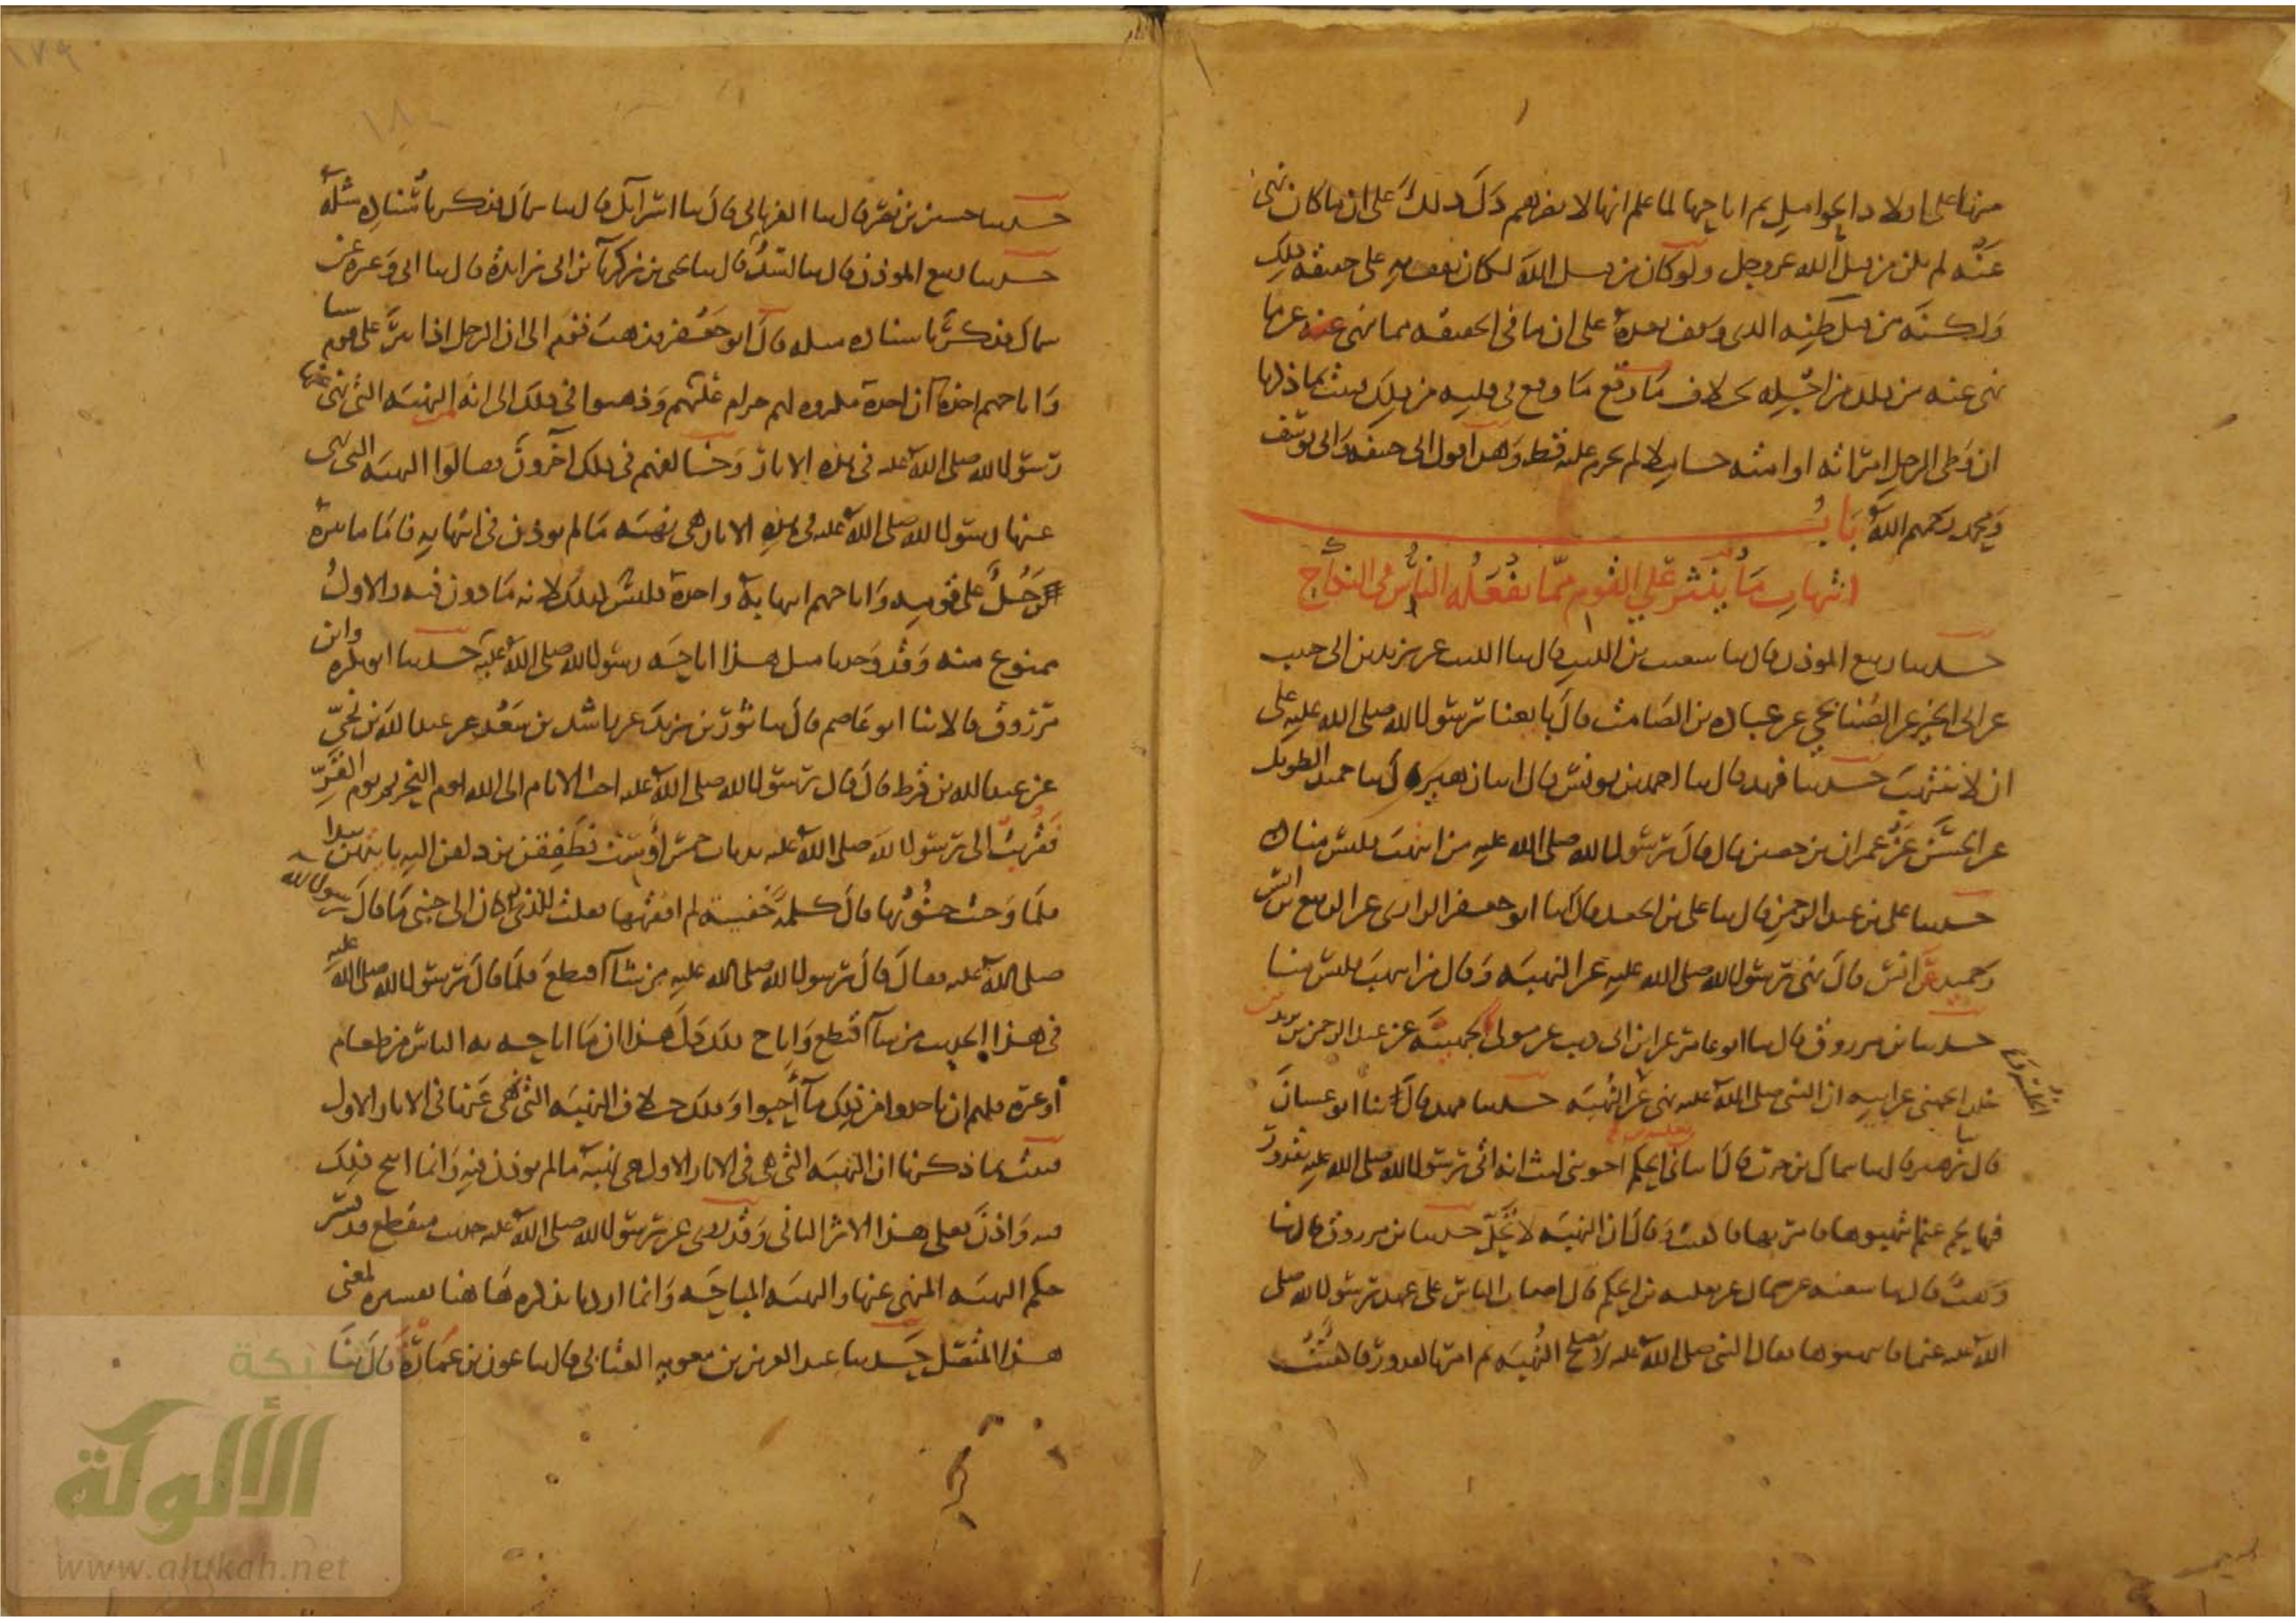 منها على اولاد الحوامل ثم اباحها لما علم انها لا تضرهم دل ذلك على ان ما كان نهى
عنه لم يكن من قبل الله عز وجل ولو كان من قبل الله لكان يقف به على حقيقة ذلك
ولكنه من قبل ظنه الذى وقف بعده على ان ما فى الحقيقة مما نهى عنه عن ما
نهى عنه من ذلك من اجله بخلاف ما وقع فى قلبه من ذلك فثبت بما ذكرنا
ان وطى الرجل امراته او امته حاملا لم يحرم عليه قط وهذا قول ابى حنيفة وابى يوسف
ومحمد رحمهم الله باب
انتهاب ما ينثر على القوم مما يفعله الناس فى النكاح
حدثنا ربيع الموذن قال ثنا شعيب بن الليث قال ثنا الليث عن يزيد بن ابى حبيب
عن ابى الخير عن الصنابحى عن عبادة بن الصامت قال بايعنا رسول الله صلى الله عليه على
ان لا ننتهب حدثنا فهد قال ثنا احمد بن يونس قال ثنا حميد الطويل
عن الحسن عن عمران بن حصين قال قال رسول الله صلى الله عليه من انتهب فليس منا
حدثنا على بن عبد الرحمن قال ثنا على بن الجعد قال انا ابو جعفر الرازى عن الربيع بن انس
وحميد عن انس قال نهى رسول الله صلى الله عليه عن النهبه وقال من انتهب فليس منا
حدثنا بن مرزوق قال ثنا ابو عامر عن ابن ابى ذيب عن مولى لجهينه عن عبد الرحمن بن زيد بن
خلد الجهنى عن ابيه ان النبى صلى الله عليه نهى عن النهبه حدثنا فهد قال ثنا ابو غسان
قال ثنا زهير قال ثنا سماك بن حرب قال انبانى ثعلبة بن الحكم اخو بنى ليث انه راى رسول الله صلى الله عليه بقدور
فيها لحم غنم انتهبوها فامر بها فاكفيت وقال ان النهبه لا تحل حدثنا بن مرزوق قال ثنا
وهب قال ثنا شعبه عن سماك عن ثعلبه بن الحكم قال اصاب الناس على عهد رسول الله صلى
الله عليه غنما فانتهبوها فقال النبى صلى الله عليه لا تصلح النهبه ثم امر بالقدور فاكفيت
حدثنا حسين بن نصر قال ثنا الفريابى قال ثنا اسرائيل قال ثنا سماك فذكر باسناده مثله
حدثنا ربيع الموذن قال ثنا اسد قال ثنا يحيى بن زكريا بن ابى زائدة قال ثنا ابى وغيره عن
سماك فذكر باسناده مثله قال ابو جعفر فذهب قوم الى ان الرجل اذا نثر على قوم شيا
واباحهم اخذه ان اخذه مكروه لهم حرام عليهم وذهبوا فى ذلك الى انه النهبه التى نهى عنها
رسول الله صلى الله عليه فى هذه الاثار وخالفهم فى ذلك آخرون فقالوا النهبه التى نهى
عنها رسول الله صلى الله عليه فى هذه الاثار هى نهبه ما لم يوذن فى انتهابه فاما ما نثره
رجل على قوم واباحهم انتهابه واخذه فليس كذلك لانه ماذون فيه والاول
ممنوع منه وقد وجدنا مثل هذا اباحه رسول الله صلى الله عليه حدثنا ابو بكره وابن
مرزوق قالا ثنا ابو عاصم قال ثنا ثور بن يزيد عن راشد بن سعد عن عبد الله بن لحى
عن عبد الله بن قرط قال قال رسول الله صلى الله عليه احب الايام الى الله يوم النحر ثم يوم القر
فقربت الى رسول الله صلى الله عليه بدنات خمس او ست فطفقن يزدلفن اليه بايتهن يبدا
فلما وجبت جنوبها قال كلمة خفية لم افهمها فقلت للذى كان الى جنبى ما قال رسول الله
صلى الله عليه فقال قال رسول الله صلى الله عليه من شاء اقتطع فلما قال رسول الله صلى الله عليه
فى هذا الحديث من شاء اقتطع واباح ذلك دل هذا ان ما اباحه به الناس من طعام
او غيره فلهم ان ياخذوا من ذلك ما احبوا وذلك خلاف النهبه التى نهى عنها فى الاثار الاول
فثبت بما ذكرنا ان النهبه التى هى فى الاثار الاول هى نهبه ما لم يوذن فيه وانما ابيح ذلك
فيه واذن فعلى هذا الاثر الثانى وقد روى عن رسول الله صلى الله عليه حديث منقطع قد فسر
حكم النهبه المنهى عنها والنهبه المباحه وانما اردنا بذكره هاهنا تفسيره لمعنى
هذا المتصل حدثنا عبد العزيز بن معويه العتابى قال ثنا عون بن عمارة قال ثنا
١٧٩
١٨٠
شبكة
الألوكة
www.alukah.net